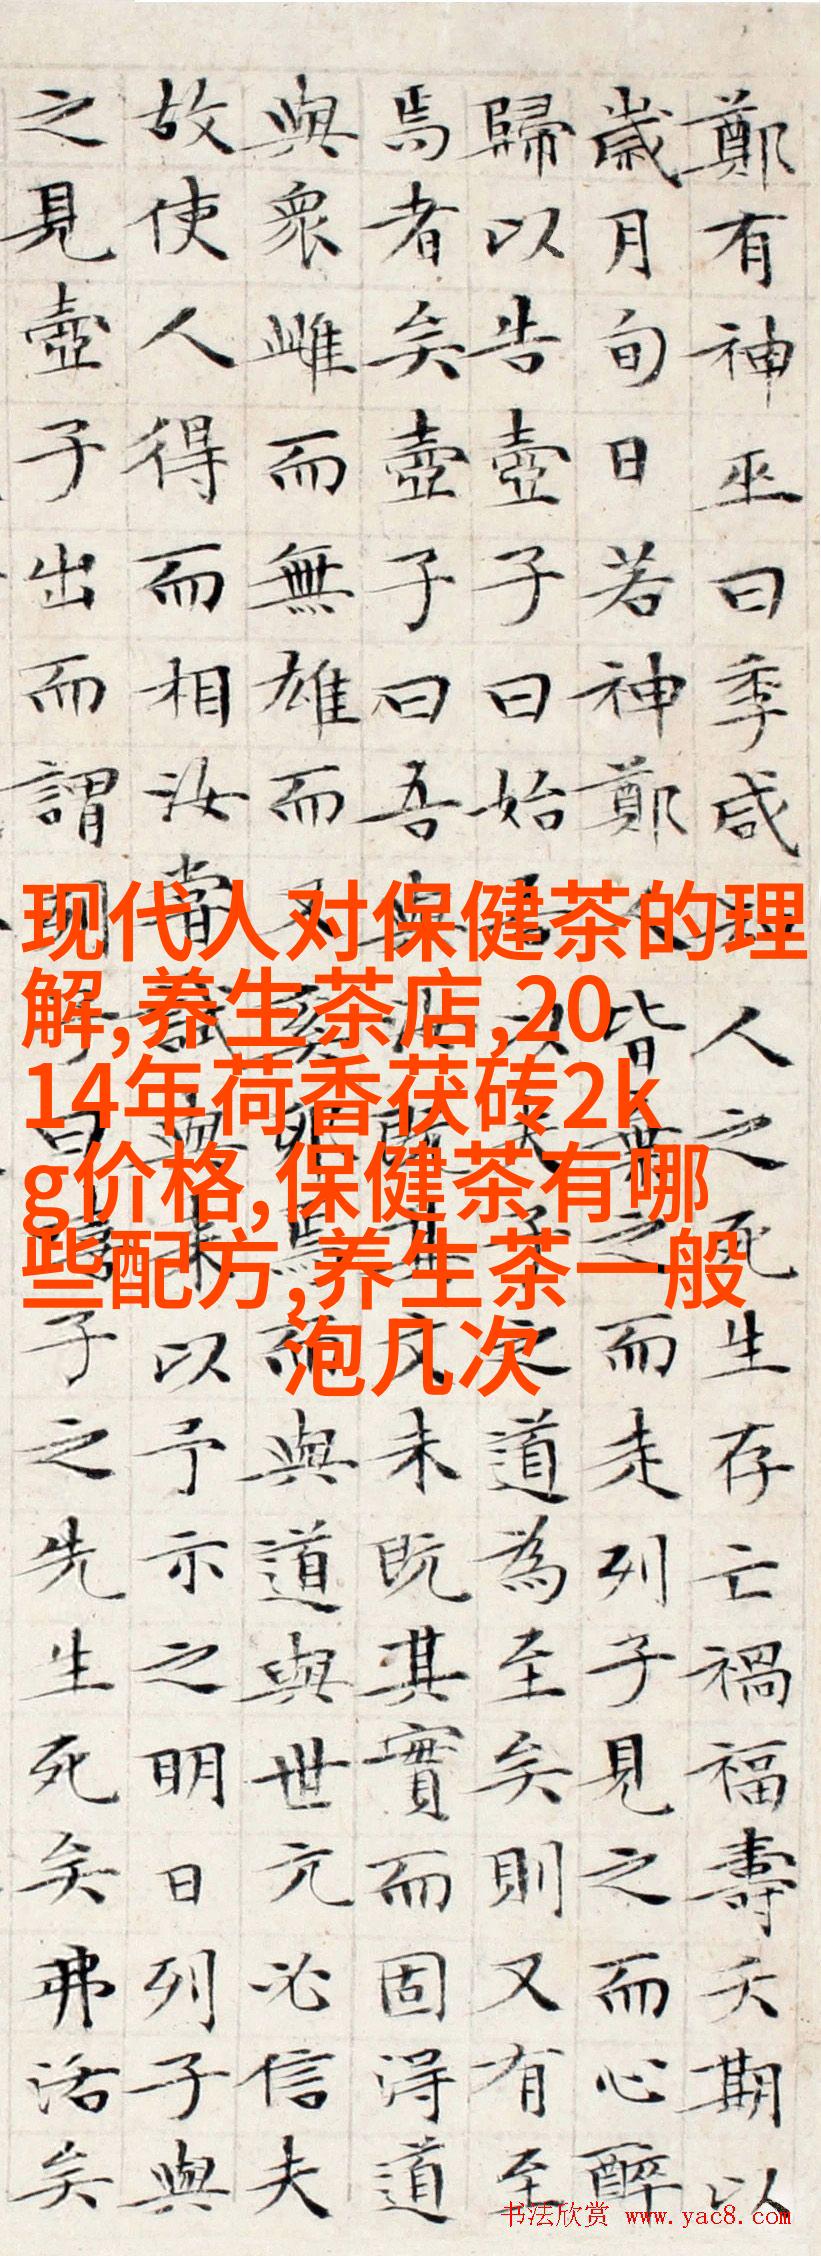 鄭有神巫曰季咸知人之死生存亡禍福壽夭期以
歲月旬日若神鄭人皆棄之而走列子見之而心醉
歸以告壺子曰始吾以夫子之道為至矣則又有至
焉者矣壺子曰吾與汝既其文未既其實而固淂道
與衆雌而無雄而又奚卵焉而與道與世亢必信夫
故使人得而相汝嘗試與来以予示之明日列子與
之見壺子出而謂列子曰嘻子之先生死矣弗活矣
现代人对保健茶的理
解,养生茶店,20
14年荷香茯砖2k
g价格,保健茶有哪
些配方,养生茶一般
泡几次
书法欣赏 www.yac8.com